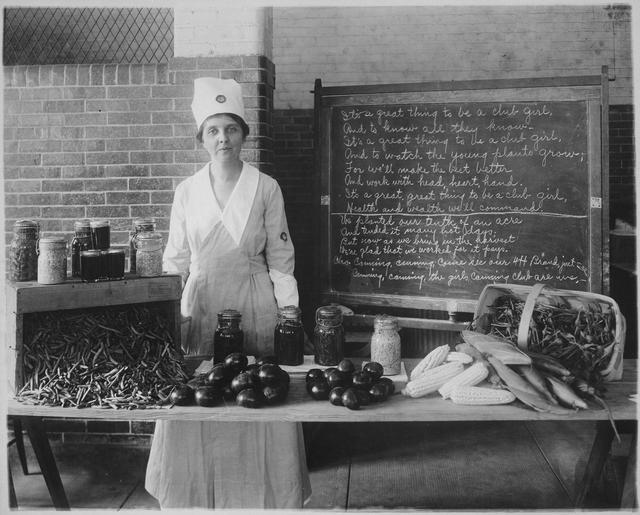 It's a great thing to be a club girl,
And to know all they know.
It's a great thing to be a club girl,
And to watch the young plants grow;
For we'll make the best better
And work with head, heart, hand.
Its a great great thing to be a club girl,
Health and wealth we'll command.
We planted our tenth of an acre
And tended it many hot days,
But now as we bring in the harvest
We're glad that we worked for it pays.
Canning, canning, Come see our 4H Brand, just
Canning, canning, the girls Canning Club are we,